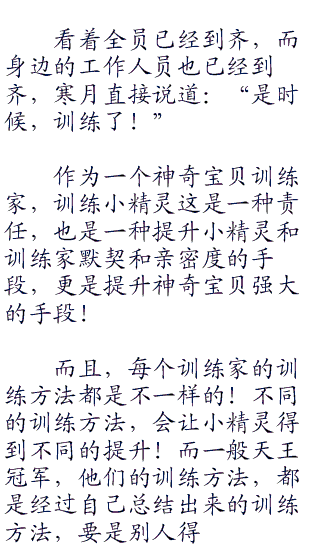 看着全员已经到齐，而
身边的工作人员也已经到
齐，寒月直接说道：“是时
候，训练了！”
作为一个神奇宝贝训练
家，训练小精灵这是一种责
任，也是一种提升小精灵和
训练家默契和亲密度的手
段，更是提升神奇宝贝强大
的手段！
而且，每个训练家的训
练方法都是不一样的！不同
的训练方法，会让小精灵得
到不同的提升！而一般天王
冠军，他们的训练方法，都
是经过自己总结出来的训练
方法，要是别人得